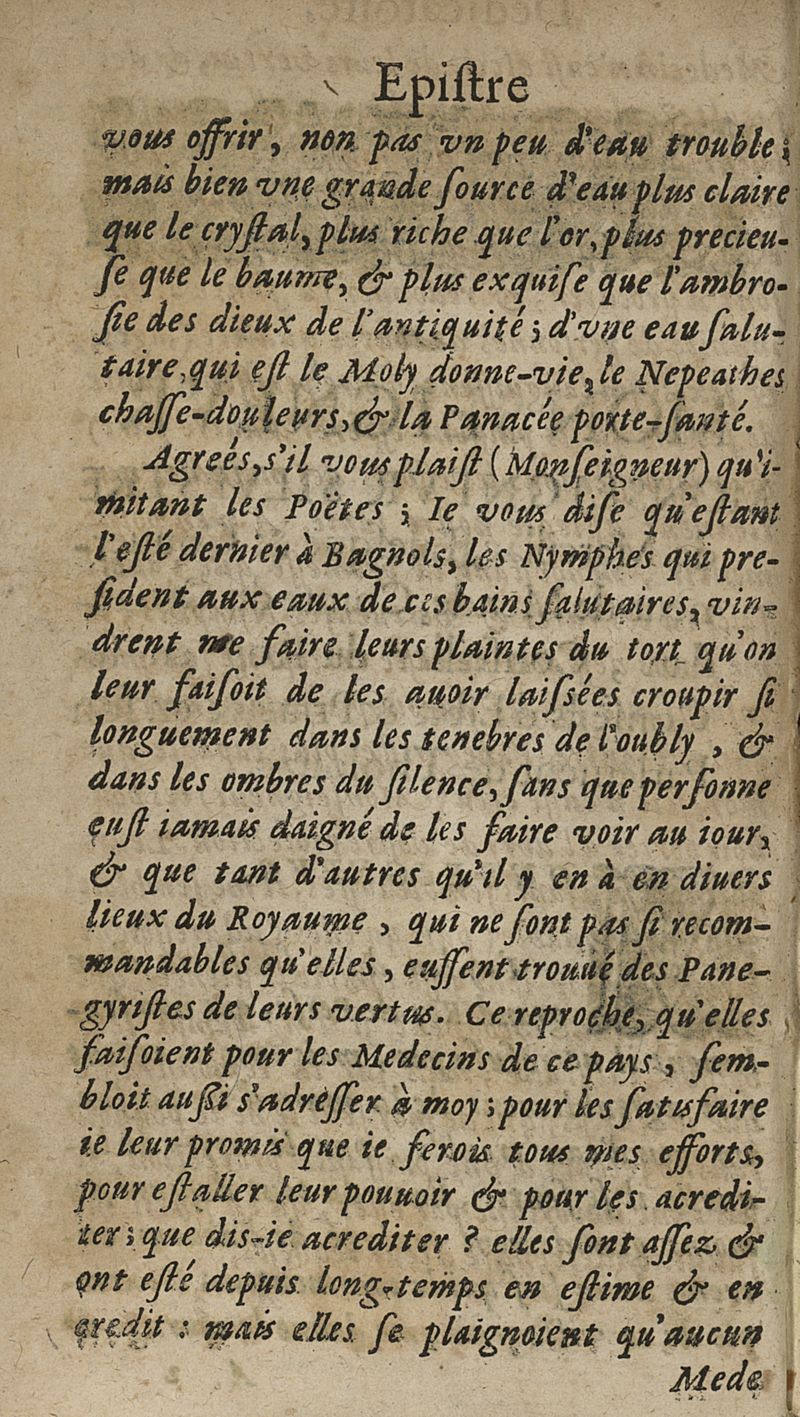 Epiſtre
vous offrir, non pas vn peu d'eau trouble;
mais bien vne grande ſource d'eau plus claire
que le cryſtal, plus riche que l'or, plus precieu-
ſe que le baume, & plus exquiſe que l'ambro-
ſie des dieux de l'antiquité; d'vne eau ſalu-
taire, qui eſt le Moly donne-vie, le Nepeathes
chaſſe-douleurs, & la Panacée porte-ſanté.
Agreés, s'il vous plaiſt (Monſeigneur) qu'i-
mitant les Poëtes; Ie vous diſe qu'eſtant
l'eſté dernier à Bagnols, les Nymphes qui pre-
ſident aux eaux de ces bains ſalutaires, vin-
drent me faire leurs plaintes du tort qu'on
leur faiſoit de les auoir laiſsées croupir ſi
longuement dans les tenebres de l'oubly, &
dans les ombres du ſilence, ſans que perſonne
euſt iamais daigné de les faire voir au iour,
& que tant d'autres qu'il y en à en diuers
lieux du Royaume, qui ne ſont pas ſi recom-
mandables qu'elles, euſſent trouué des Pane-
gyriſtes de leurs vertus. Ce reproche, qu'elles
faiſoient pour les Medecins de ce pays, ſem-
bloit auſſi s'adreſſer à moy; pour les ſatisfaire
ie leur promis que ie ferois tous mes efforts,
pour eſtaller leur pouuoir & pour les acredi-
ter; que dis-ie acrediter? elles ſont aſſez &
ont eſté depuis long-temps en eſtime & en
credit: mais elles ſe plaignoient qu'aucun
Mede